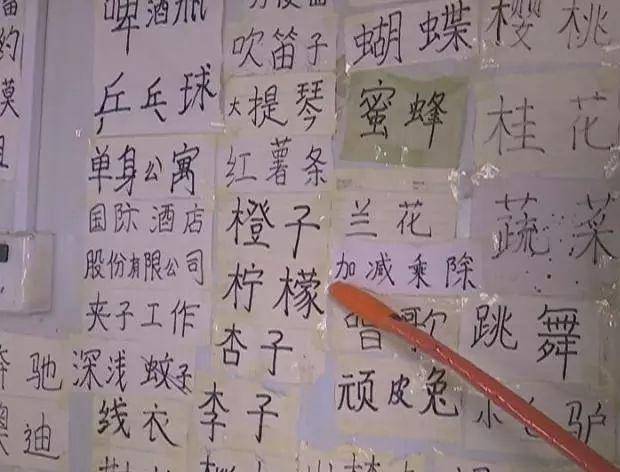 啤酒瓶
乒乓球
单身公寓
国际酒店
股份有限公司
夹子工作
深浅 蚊子
线衣
吹笛子
大提琴
红薯条
橙子
柠檬
杏子
李子
蝴蝶
蜜蜂
兰花
加减乘除
唱歌
顽皮兔
樱桃
桂花
蔬菜
跳舞
驴
奔驰
奥迪
约